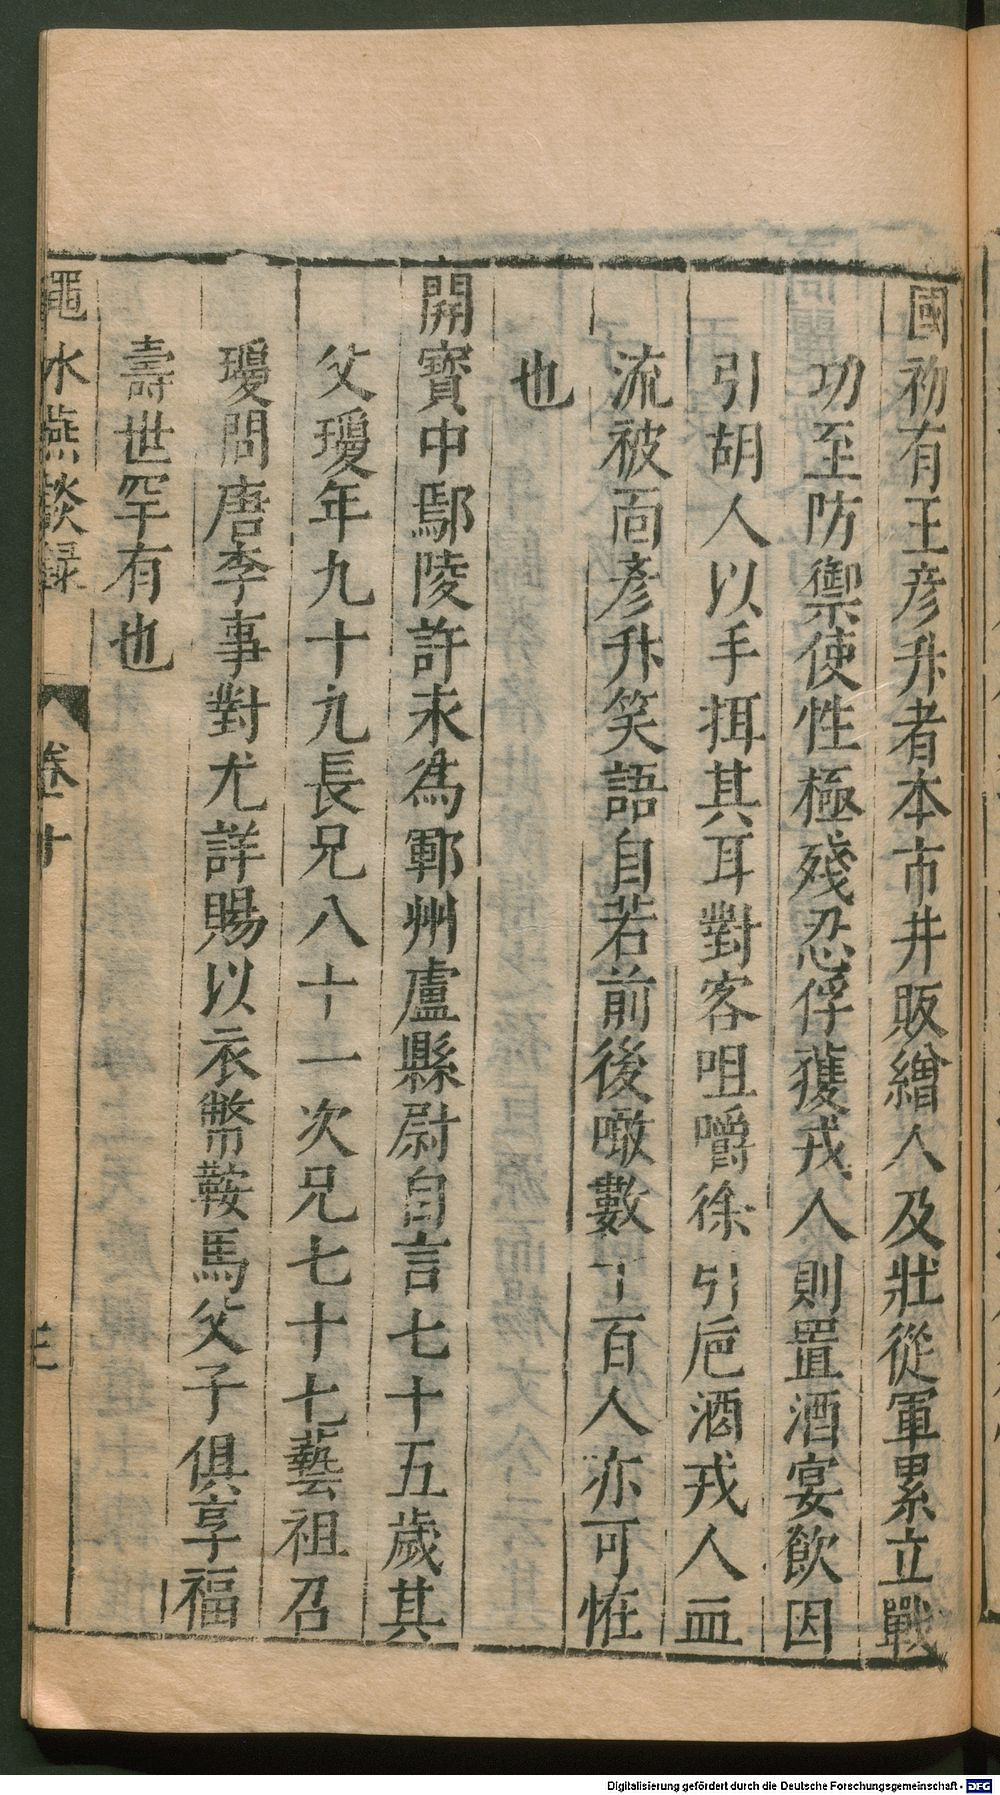 國初有王彦升者本市井販繒人及壯從軍累立戰
功至防禦使性極殘忍俘獲戎人則置酒宴飲因
引胡人以手揖其耳對客咀嚼徐引卮酒戎人血
流被面彦升笑語自若前後噉數百人亦可恠
也
開寳中鄢陵許永爲鄆州盧縣尉自言七十五歲其
父瓊年九十九長兄八十一次兄七十七藝祖召
瓊問唐季事對尤詳賜以衣幣鞍馬父子俱享福
壽世罕有也
澠水燕談録 卷十
Digitalisierung gefördert durch die Deutsche Forschungsgemeinschaft - DFG